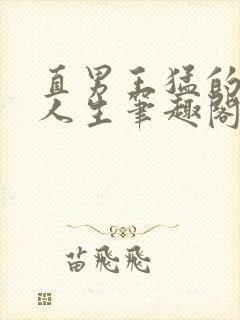 直男王猛的
人生笔趣阁
苗飛飛